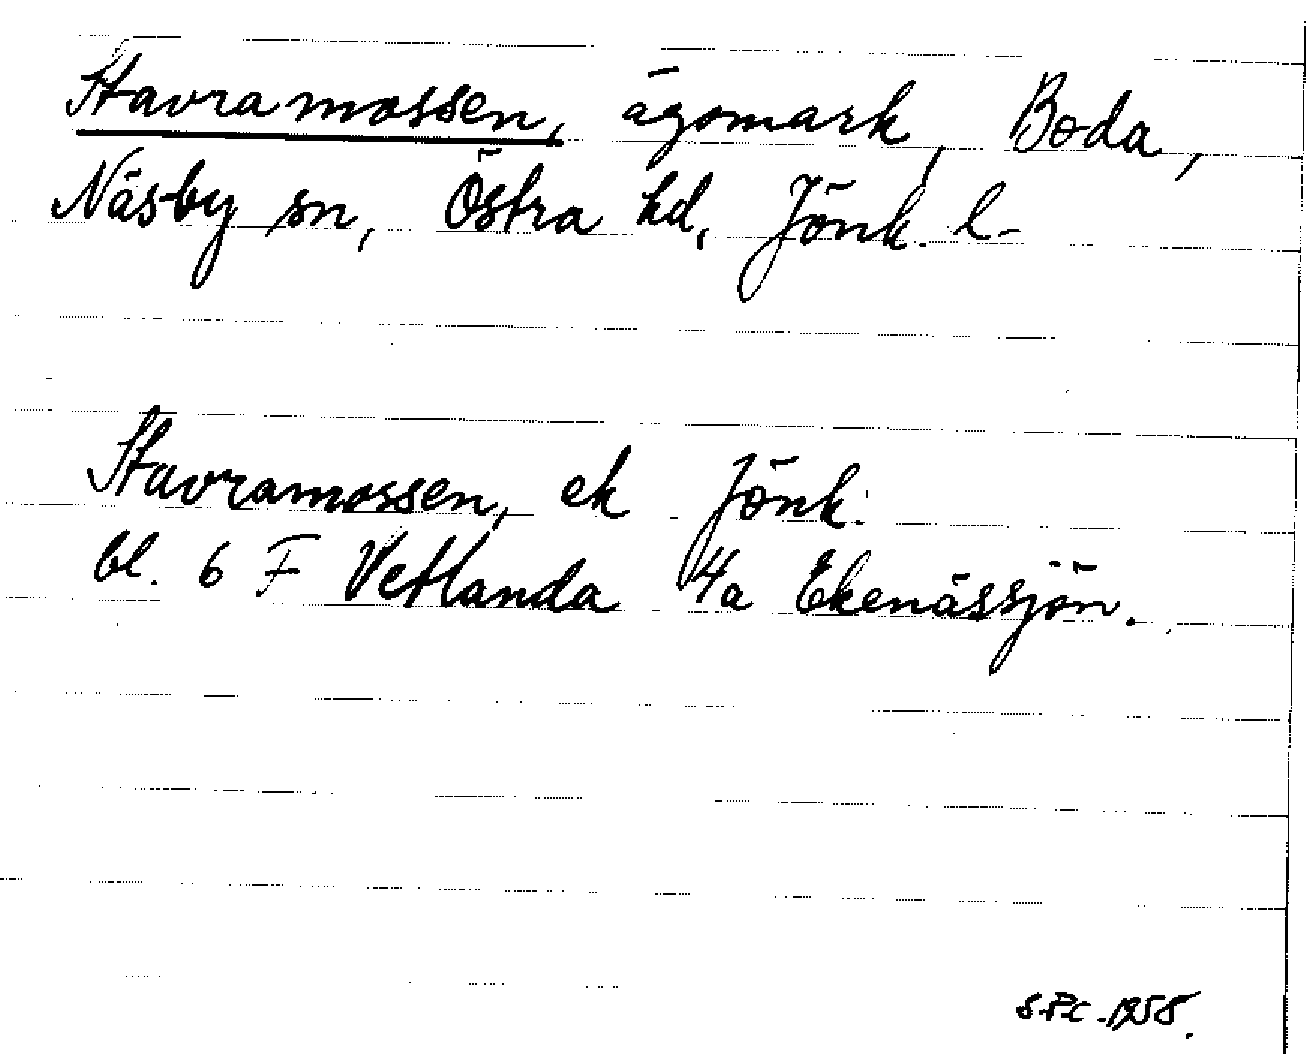 Stavramossen, ägomark, Boda,
Näsby sn, Östra hd, Jönk. l.
Stavramossen, ek Jönk.
bl. 6 F Vetlanda 4a Ekenässjön.
1958.